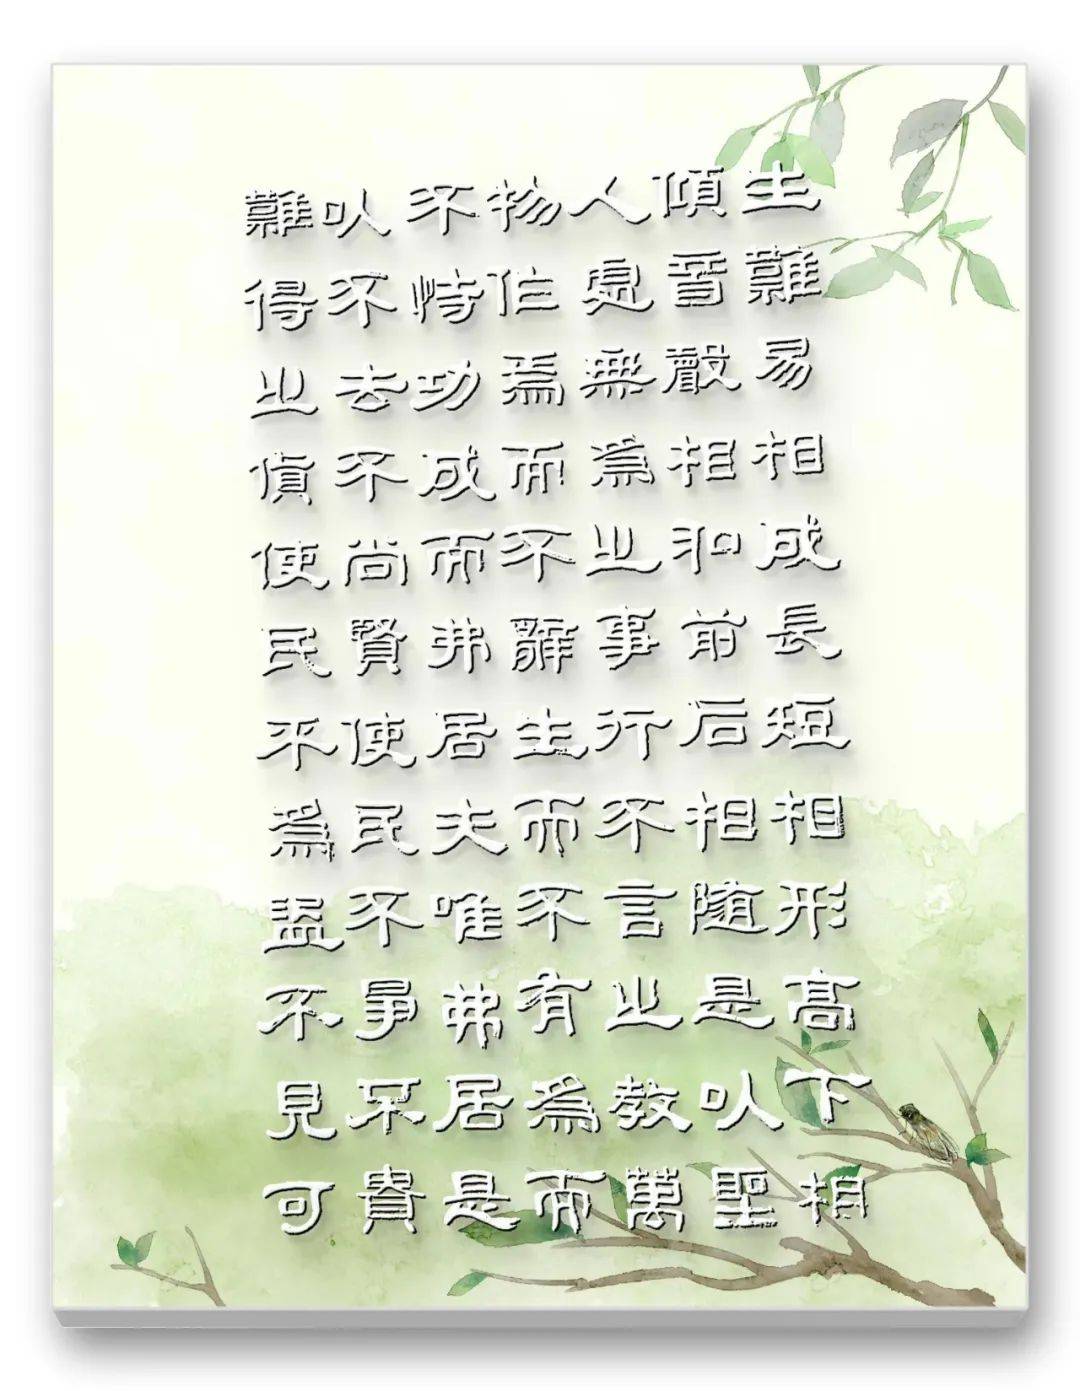 生難易相成長短相形高下相
傾音聲相和前后相随是以聖
人處無為之事行不言之教萬
物作焉而不辭生而不有為而
不恃功成而弗居夫唯弗居是
以不去不尚賢使民不爭不貴
難得之貨使民不為盜不見可